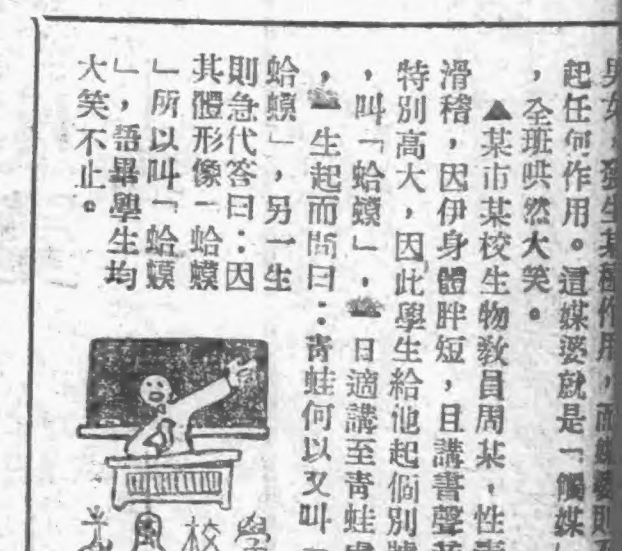 發生某種作用，而媒婆則
起任何作用。這媒婆就是「觸媒」
，全班哄然大笑。
▲某市某校生物教員周某，性
滑稽，因伊身體胖短，且講書聲
特別高大，因此學生給他起個別號
，叫「蛤蟆」，一日適講至青蛙處
，一生起而問曰：青蛙何以又叫「
蛤蟆」，另一生
則急代答曰：因
其體形像一蛤蟆
」所以叫「蛤蟆
」，語畢學生均
大笑不止。
學
校
風